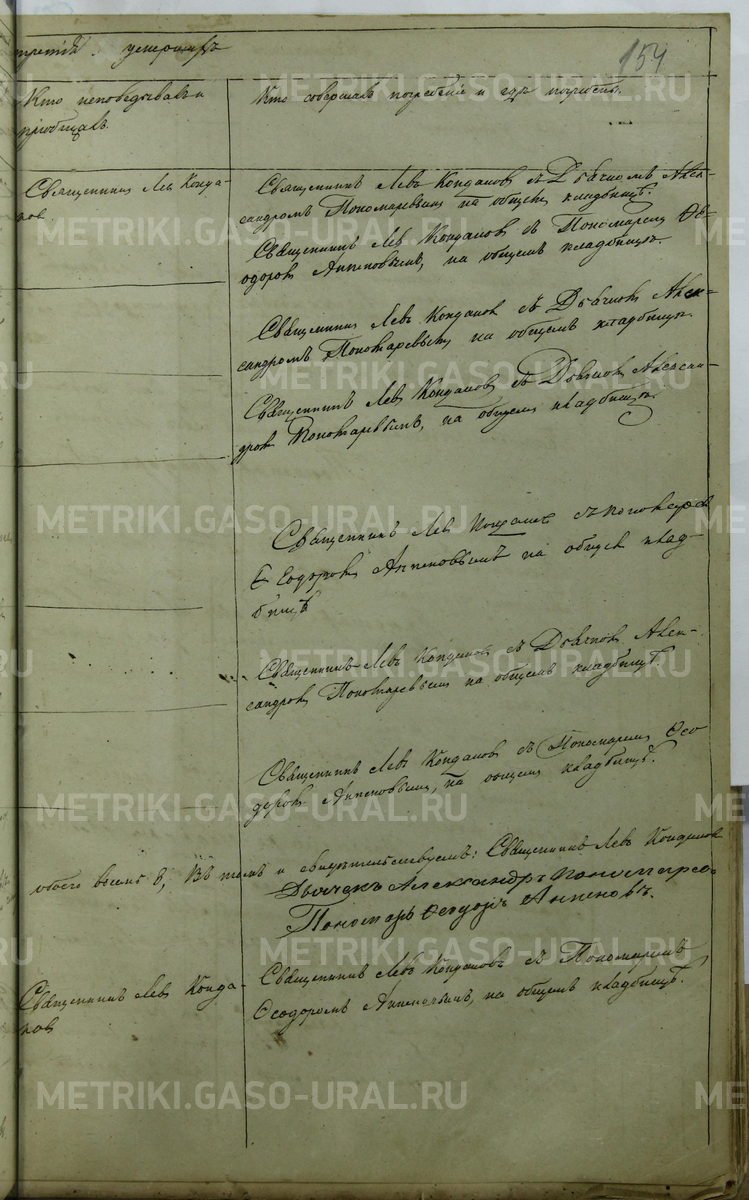 третiя. умершихъ
154
Кто исповѣдывалъ и
прiобщалъ.
Кто совершалъ погребенiе и гдѣ погребены.
Священникъ Левъ Конда-
ковъ.
Священникъ Левъ Кондаковъ съ Дьячкомъ Алек-
сандромъ Пономаревымъ на общемъ кладбищѣ.
Священникъ Левъ Кондаковъ съ Пономаремъ Ѳе-
одоромъ на общемъ кладбищѣ.
Священникъ Левъ Кондаковъ съ Дьячкомъ Алек-
сандромъ Пономаревымъ на общемъ кладбищѣ.
Священникъ Левъ Кондаковъ съ Дьячкомъ Алексан-
дромъ Пономаревымъ, на общемъ кладбищѣ.
Священникъ Левъ Кондаковъ съ пономаремъ
Ѳеодоромъ на общемъ клад-
бищѣ
Священникъ Левъ Кондаковъ съ Дьячкомъ Алек-
сандромъ Пономаревымъ на общемъ кладбищѣ.
Священникъ Левъ Кондаковъ съ Пономаремъ Ѳео-
доромъ на общемъ кладбищѣ.
обоего восемь 8, Въ томъ и свидѣтельствуемъ: Священникъ Левъ Кондаковъ
Дьячекъ Александръ Пономарев
Пономарь Ѳеодоръ
Священникъ Левъ Конда-
ковъ
Священникъ Левъ Кондаковъ съ Пономаремъ
Ѳеодоромъ на общемъ кладбищѣ.
METRIKI.GASO-URAL.RU